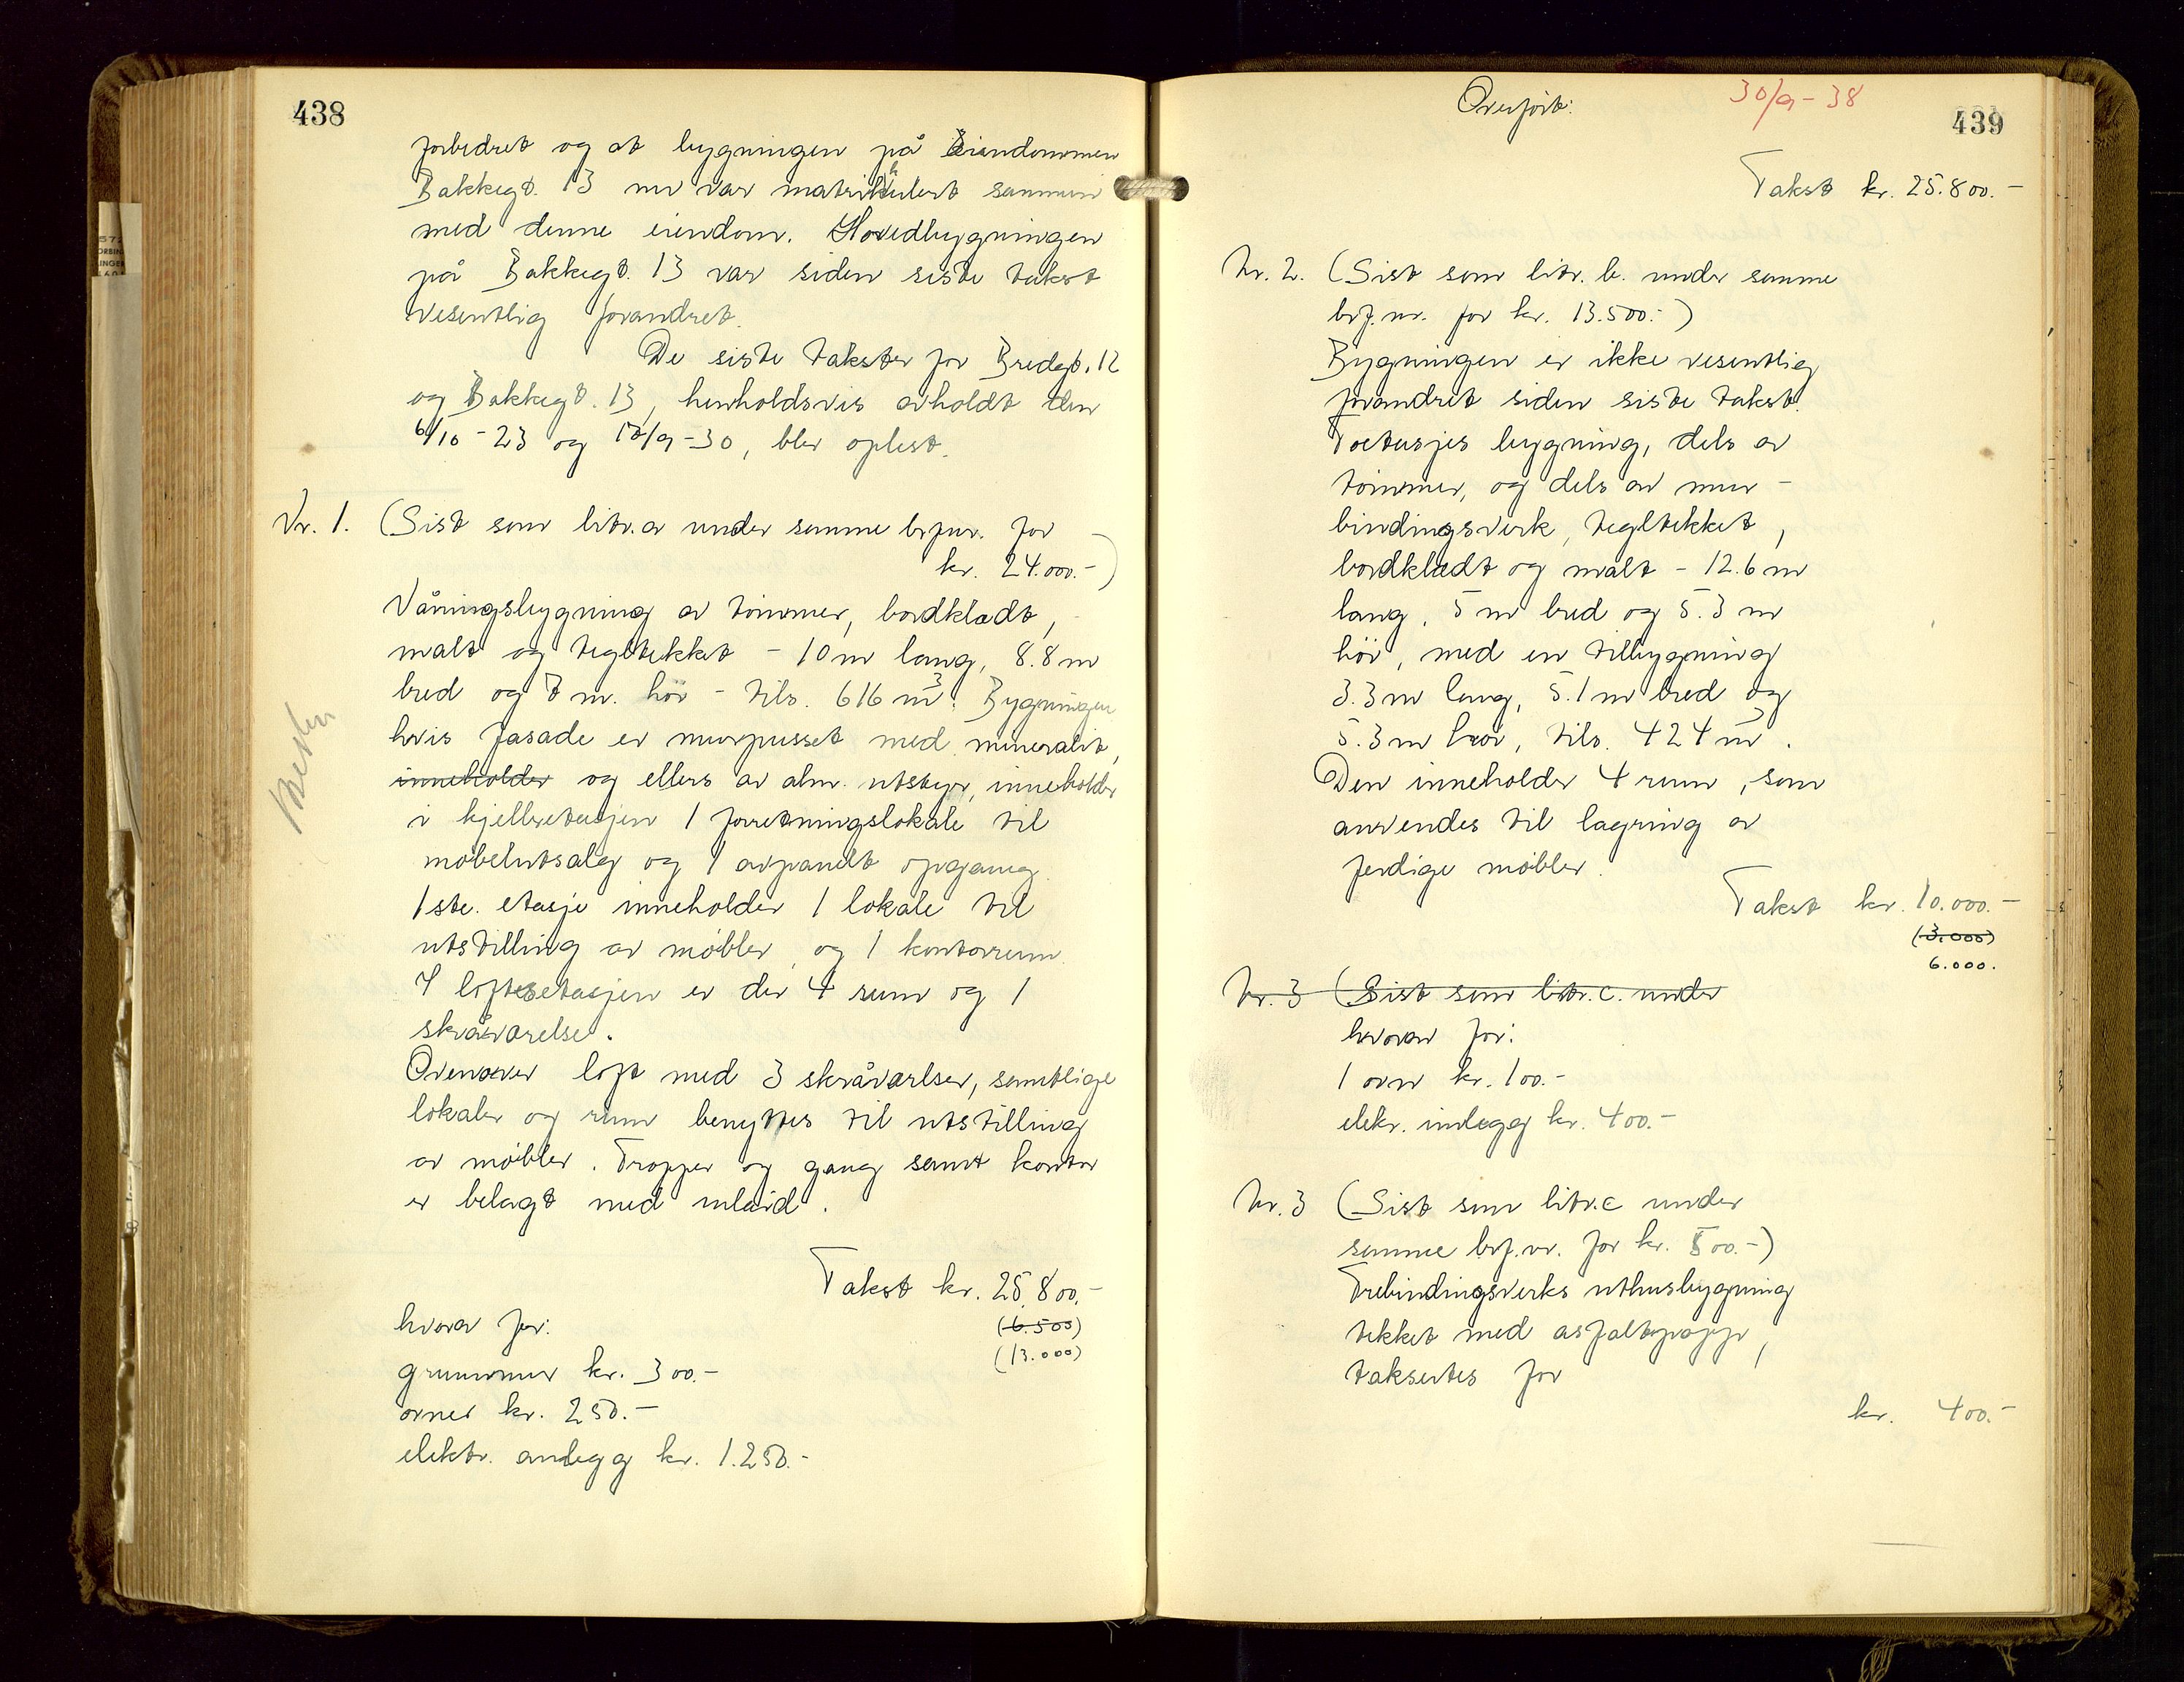 438
forbedret og at bygningen på Eiendommen
Bakkegt. 13 nu var matrikulert sammen
med denne eiendom. Hovedbygningen
på Bakkegt. 13 var siden siste takst
vesentlig forandret.
De siste takster for Bredegt. 12
og Bakkegt. 13, henholdsvis avholdt den
6/10 - 23 og /9 - 30, blev oplest.
Nr. 1. (Sist som litr. a under samme brf.nr. for
kr. 24.000.-)
Våningsbygning av tømmer, bordklædt,
malt og tegltekket - 10 m lang, 8.8 m
bred og 7 m. høi - tils. 616 m³. Bygningen
hvis fasade er murpusset med mineralit,
inneholder og ellers av alm. utstyr, inneholder
i kjelleretasjen 1 forretningslokale til
møbelutsalg og 1 avpanelt opgang.
1ste. etasje inneholder 1 lokale til
utstilling av møbler, og 1 kontorrum.
I loftsetasjen er der 4 rum og 1
skråværelse.
Ovenover loft med 3 skråværlser, samtlige
lokaler og rum benyttes til utstilling
av møbler. Trapper og gang samt kontor
er belagt med inlaid.
Takst kr. 25.800.-
hvorav for:
(6.500)
(13.000)
grunnmur kr. 300.-
ovner kr. 250.-
elektr. anlegg kr. 1.250.-
Overført:
30/9 - 38
439
Takst kr. 25.800.-
Nr. 2. (Sist som litr. b. under samme
brf.nr. for kr. 13.500.-)
Bygningen er ikke vesentlig
forandret siden siste takst.
Toetasjes bygning, dels av
tømmer, og dels av mur-
bindingsverk, tegltekket,
bordklædt og malt - 12.6 m
lang, 5 m bred og 5.3 m
høi, med en tilbygning
3.3 m lang, 5.1 m bred og
5.3 m høi, tils. 424 m³.
Den inneholder 4 rum, som
anvendes til lagring av
ferdige møbler.
Takst kr. 10.000.-
(3.000)
6.000.
Nr. 3 (Sist som litr. c. under
hvorav for:
1 ovn kr. 100.-
elekr. indlegg kr. 400.-
Nr. 3 (Sist som litr. c under
samme brf.nr. for kr. 500.-)
Trebindingsverks uthusbygning
tekket med asfaltpapp,
taksertes for
kr. 400.-